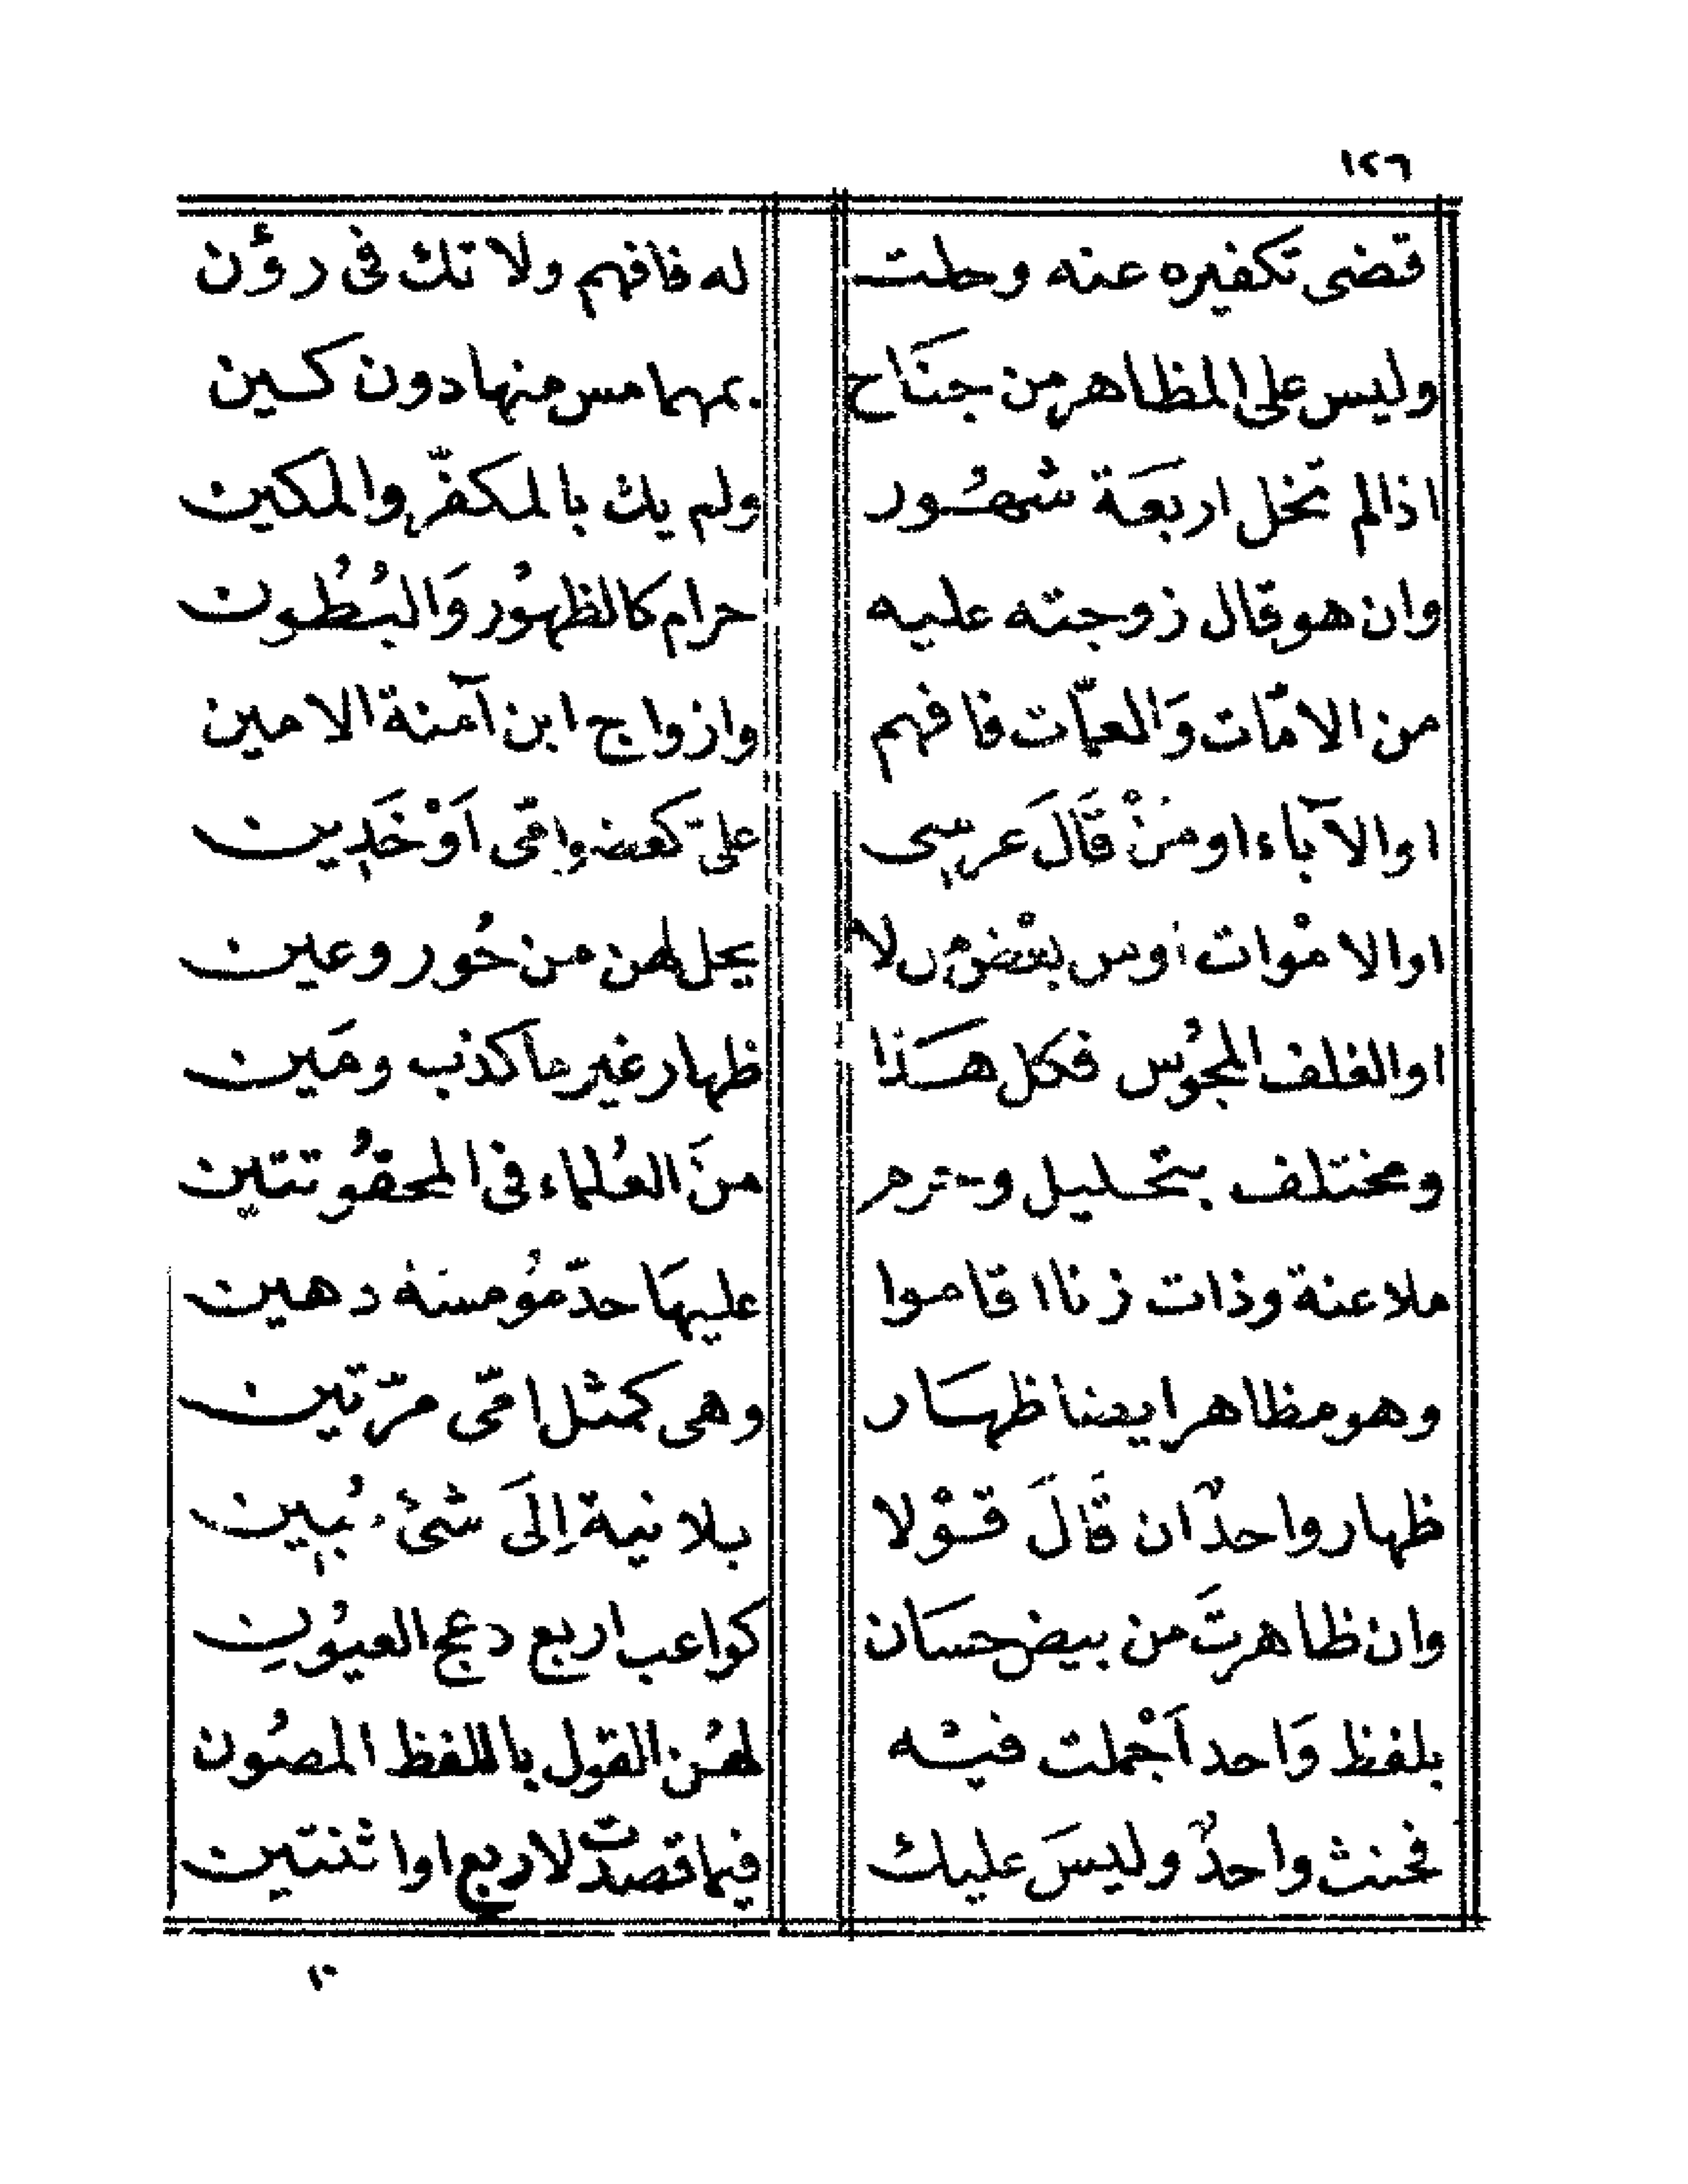 ١٢٦
قضى تكفيره عنه وحلت له فافهم ولا تك فى رؤن
وليس على المظاهر من جنَاح بمهما مس منها دون كين
اذا لم تخل اربعَة شهُور ولم يك بالمكفّر والمكين
وان هو قال زوجته عليه حرام كالظهُور وَالبُطُون
من الامّات وَالعمّات فافهم وازواج ابن آمنة الامين
او الآباء او منْ قَالَ عرسِى علىّ كبعض امّى اَوْ خَدِين
او الامْوات او من بعْض من لا يحل لهن من حُور وعين
او الغلف المجُوس فكل هَذا ظهار غير ما كذب ومَين
ومختلف بتحليل وحرم منَ العُلماء فى المحقُوتتين
ملاعنة وذات زنا اقاموا عليهَا حدّ مُومسة دهين
وهو مظاهر ايضا ظهَار وهى كمثل امّى مرّتين
ظهار واحدٌ ان قَالَ قوْلا بلا نية اِلَى شئء يُبِين
وان ظاهرتَ من بيض حسَان كواعب اربع دعج العيُونِ
بلفظ وَاحد اَجْملت فيْه لهُن القول باللفظ المصُون
فحنث واحدٌ وليسَ عليك فيما قصدت لاربع او اثنتين
١٠